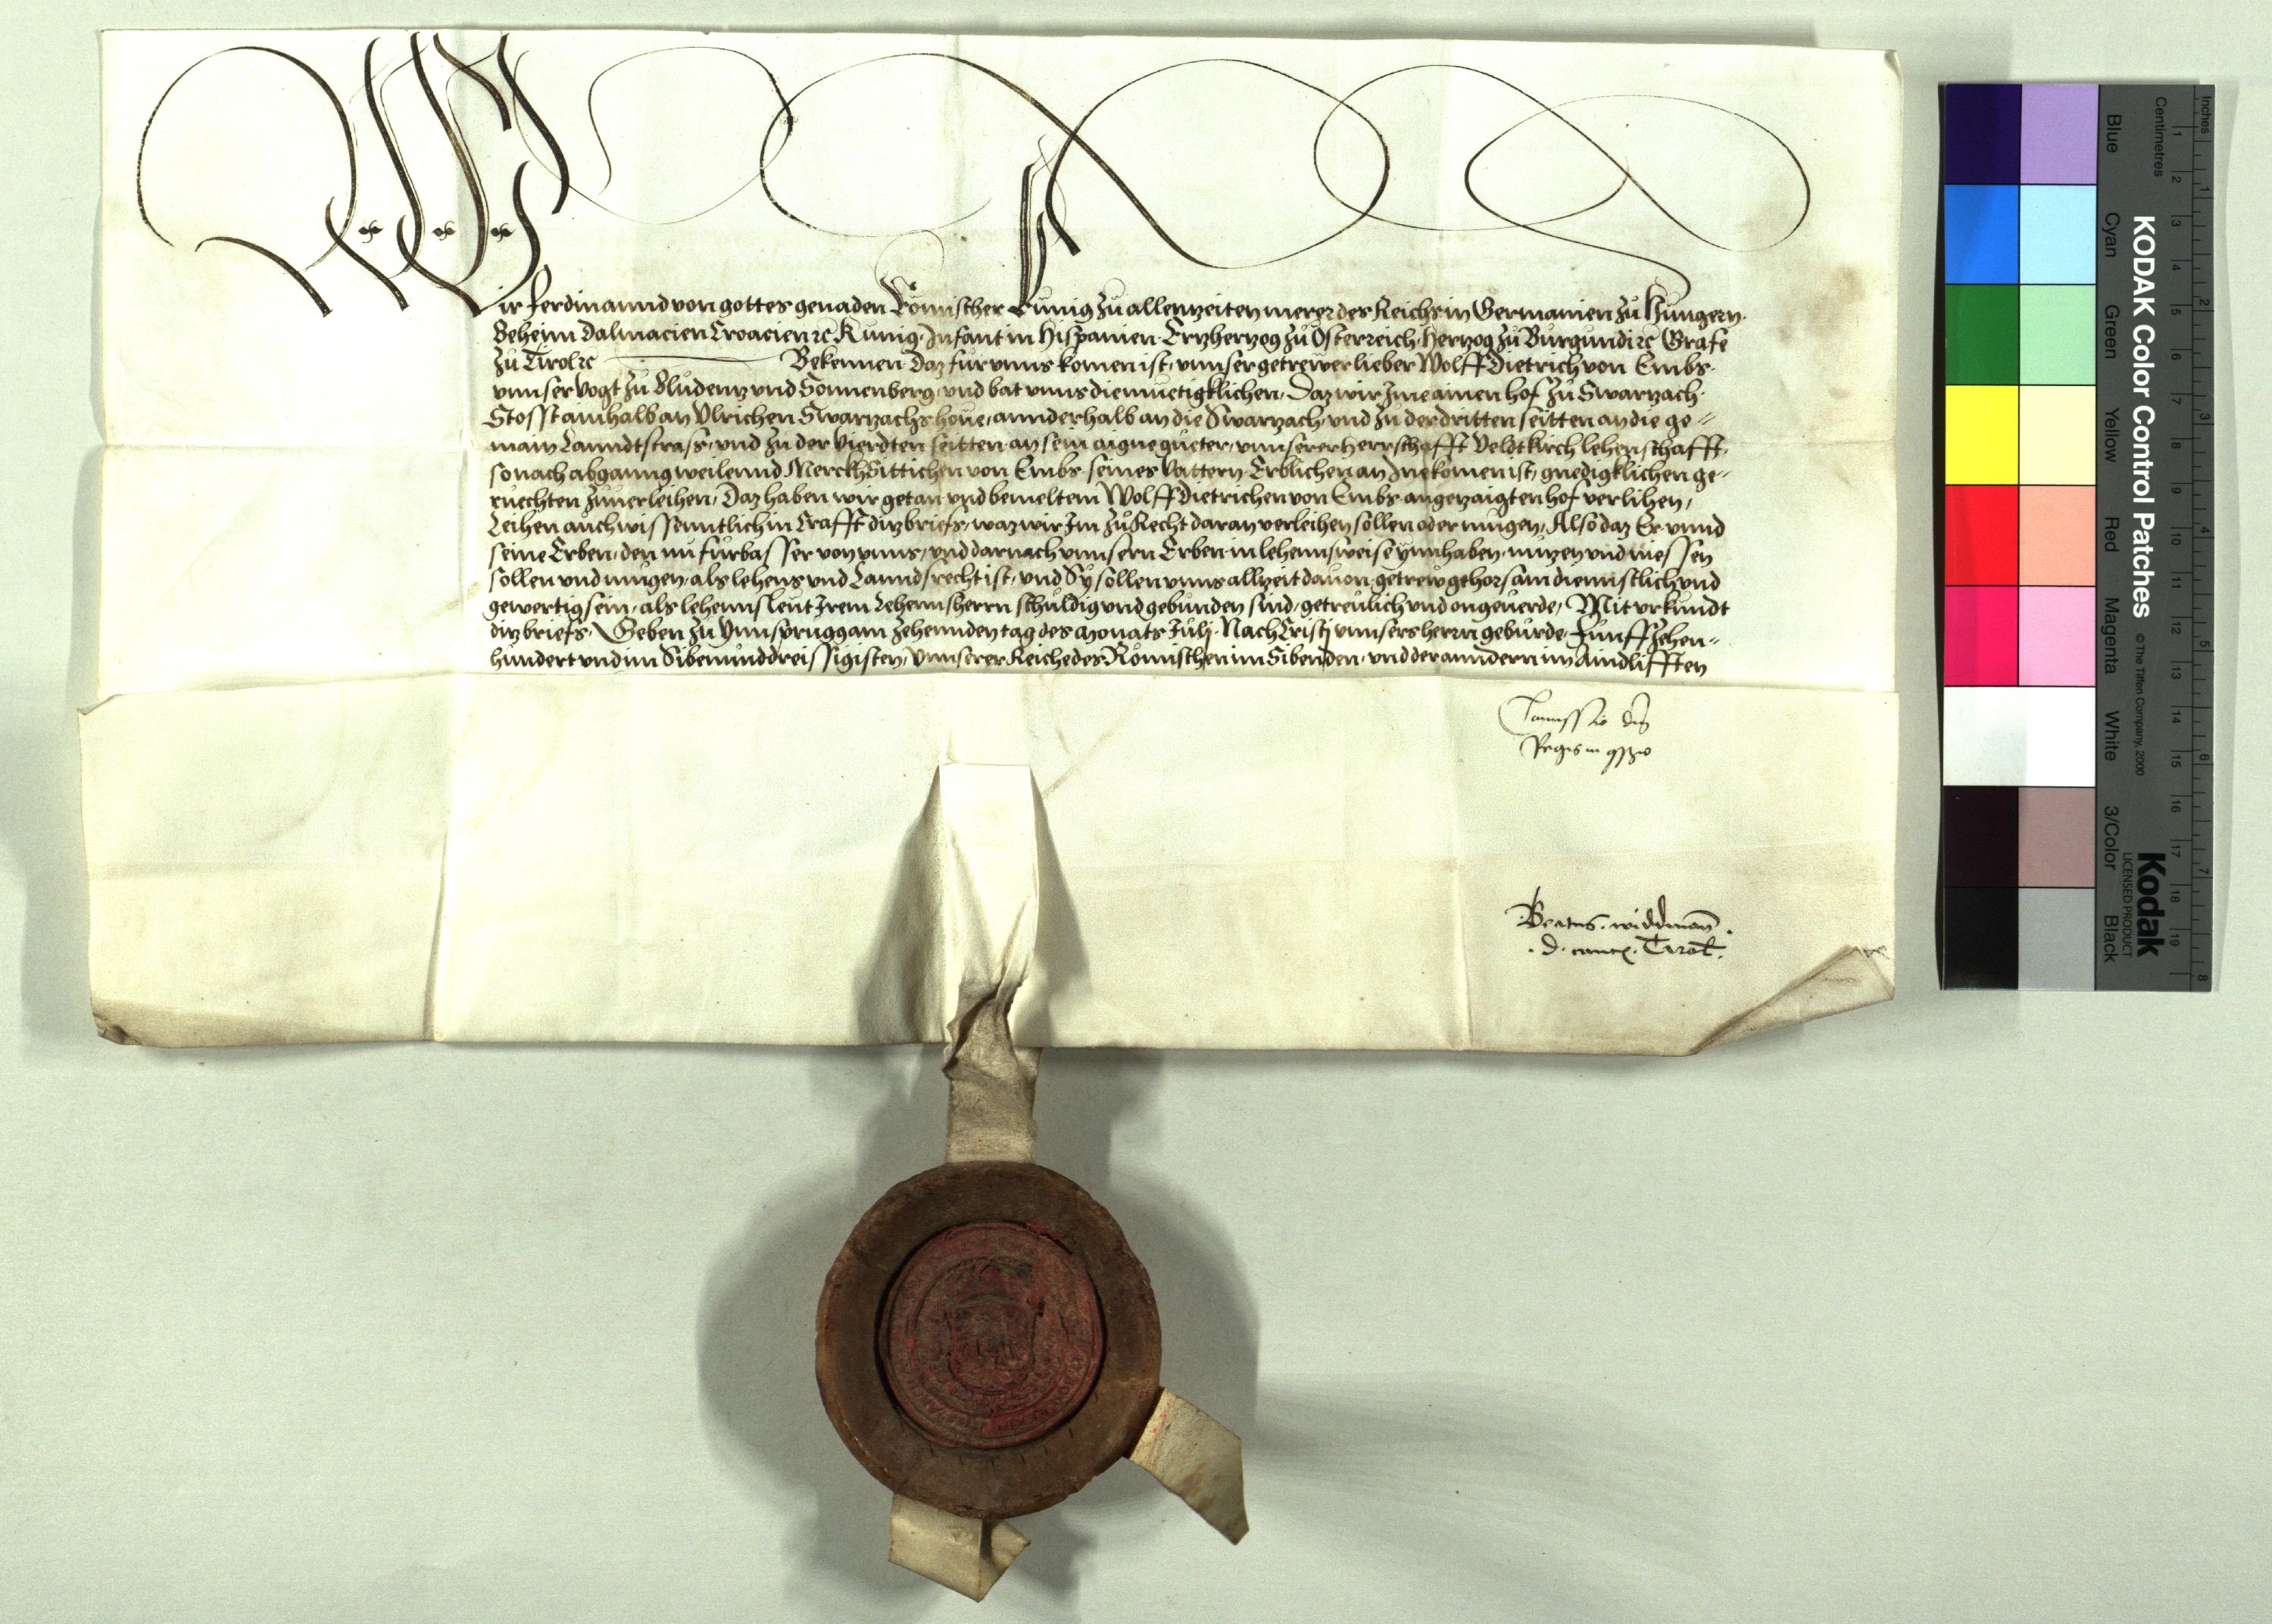 Wir Ferdinannd von gottes genaden Römischer Kunig zu allenzeiten merer des Reichs in Germanien zů Hungern.
Beheim Dalmacien Croacien ꝛc Kunig. Infant in Hispanien. Ertzhertzog zů Osterreich, Hertzog zů Burgundi ꝛc Grafe
zů Tirol ꝛc Bekennen. Daz für unns komen ist, unnser getrewer lieber Wolff Dietrich von Embs.
unnser Vogt zů Bludenz und Sonnenberg, und bat unns diemuetigklichen, Daz wir Ime ainen hof zů Swarzach.
Stosst ainhalb an Ulrichen Swarzachs houe, annderhalb an die Swarzach, und zů der dritten seitten an die ge⸗
main Lanndtstrass, und zů der vierdten seitten an sein aigne gueter, unnserer Herrschafft Veldtkirch lehenschafft,
so nach abganng weilennd Merckh Sittichen von Embs seines Vattern Erblichen an Ine komen ist, gnedigklichen ge⸗
ruechten zuuerleihen, Daz haben wir getan und bemeltem Wolff Dietrichen von Embs angezaigten hof verlihen,
Leihen auch wissenntlich in Crafft ditz briefs, waz wir Im zů Recht daran verleihen sollen oder mugen, Also daz Er unnd
seine Erben, den nu fürbasser von unns, und darnach unnsern Erben in lehennsweise ynnhaben, nutzen und niessen
sollen und mugen, als lehens und Lanndsrecht ist, und Sy sollen unns allzeit dauon, getrew gehorsam diennstlich und
gewertig sein, als lehennsleut Irem Lehennsherrn schuldig und gebunden sind, getreulich und ongeuerde, Mit urkundt
ditz briefs, Geben zů Ynnsprugg am zehennden tag des monats Julj. Nach Cristj unnsers herrn geburde, Funffzehen⸗
hundert und im Sibenunddreissigisten, Unnserer Reiche des Römischen im Sibenden, und der anndern im Aindlifften
Comissio dni
Regis in 9ſio
Beatus. widdman.
. d. canc. Tirol.
Inches
Centimetres
1 2 3 4 5 6 7 8 9 10 11 12 13 14 15 16 17 18 19
1 2 3 4 5 6 7 8
KODAK Color Control Patches
© The Tiffen Company, 2000
Kodak
LICENSED PRODUCT
Blue
Cyan
Green
Yellow
Red
Magenta
White
3/Color
Black